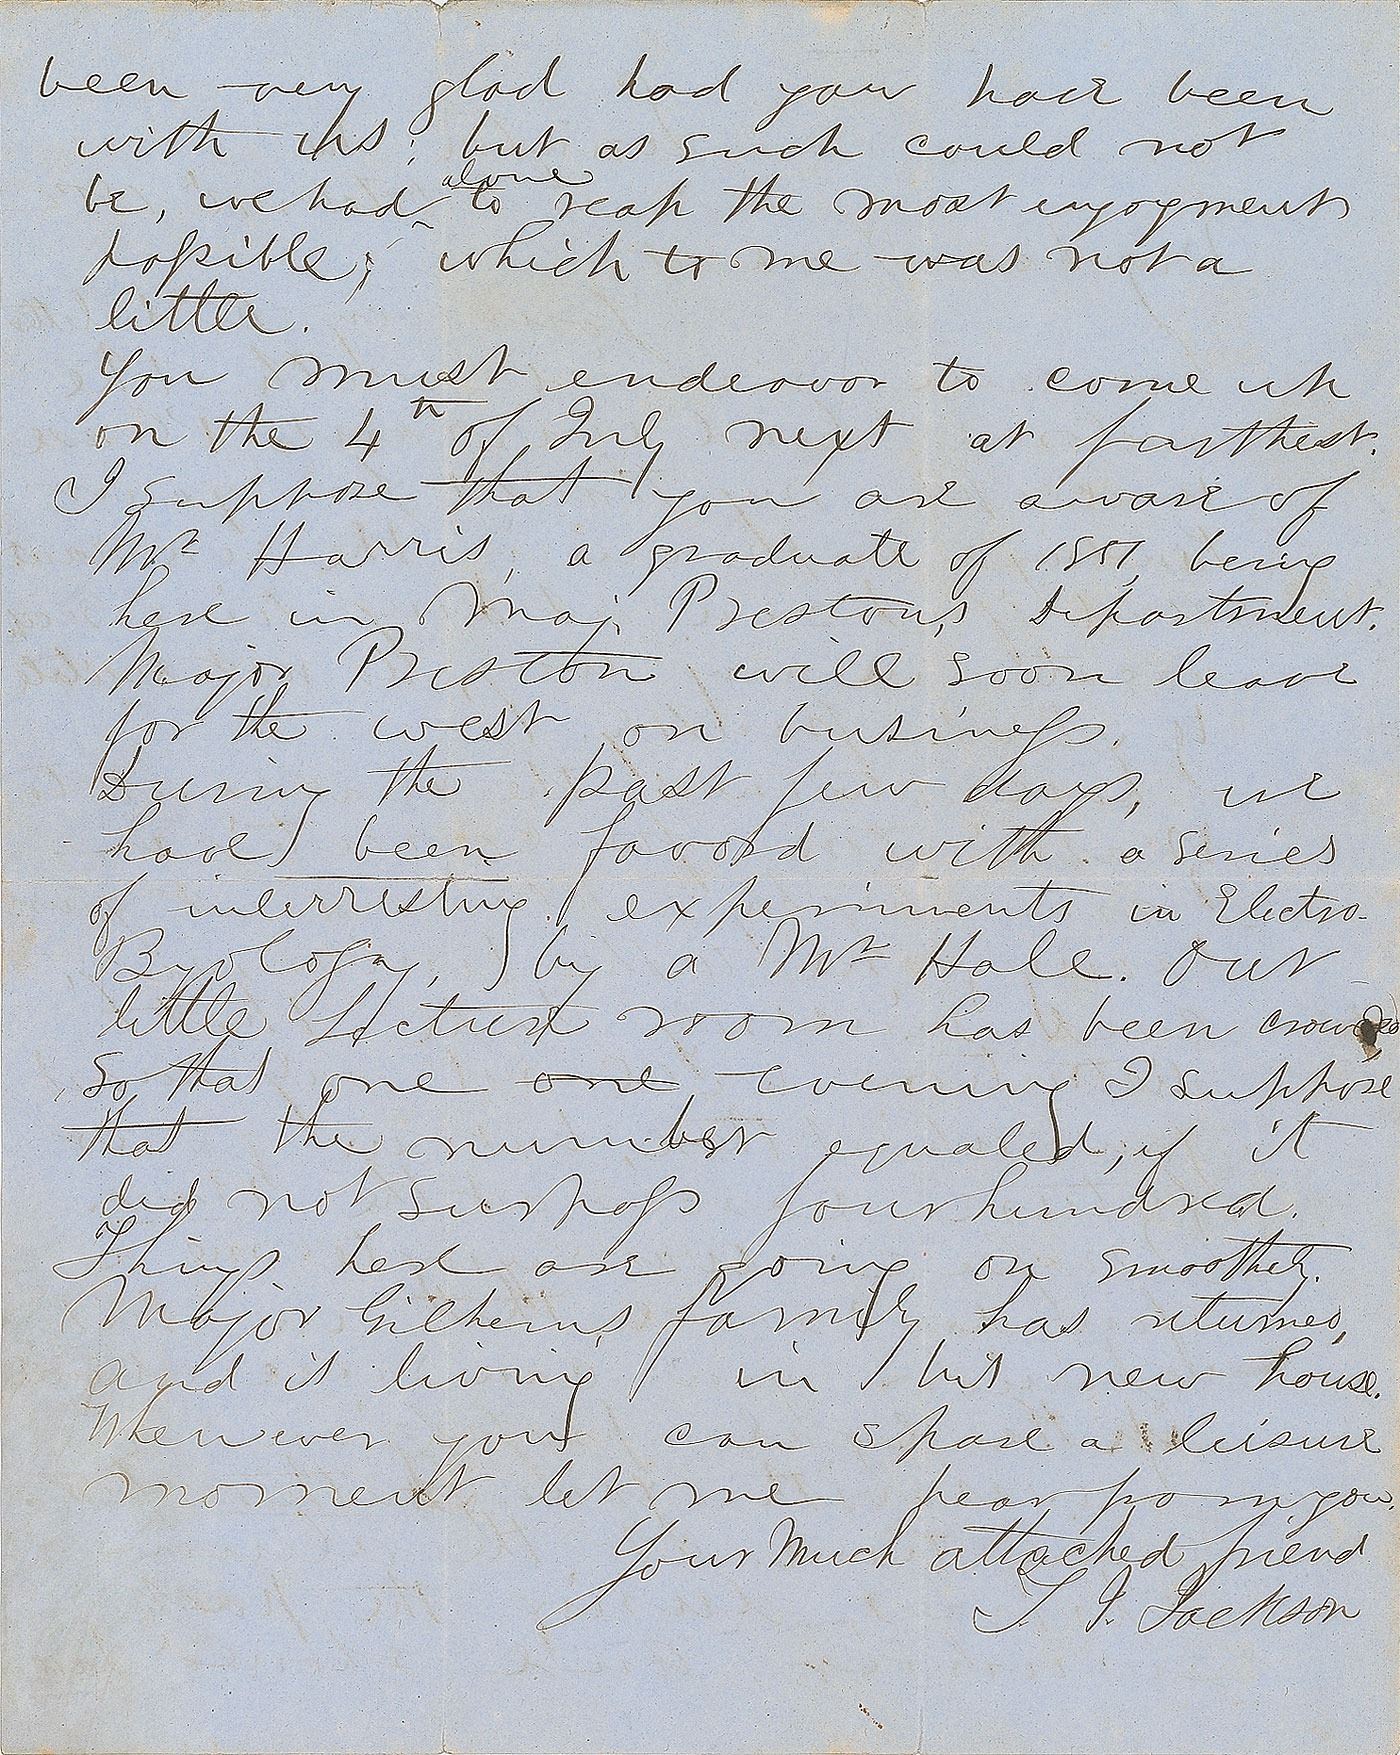 been very glad had you have been
with us; but as such could not
be, we had alone to reap the most enjoyment
possible; which to me was not a
little.
You must endeavor to come up
on the 4th of July next at farthest.
I suppose that you are aware of
Mr Harris, a graduate of 1851, being
here in Maj. Preston's Department.
Major Preston will soon leave
for the west on business.
During the past few days, we
have been favord with a series
of interresting experiments in Electro-
Byology, by a Mr Hale. Our
little Lecture room has been crowded
so that one one evening I suppose
that the number equaled, if it
did not surpass four hundred.
Things here are going on smoothely.
Major Gilham's family has returned,
and is living in his new house.
Whenever you can spare a leisure
moment let me hear from you.
Your much attached friend
T. J. Jackson